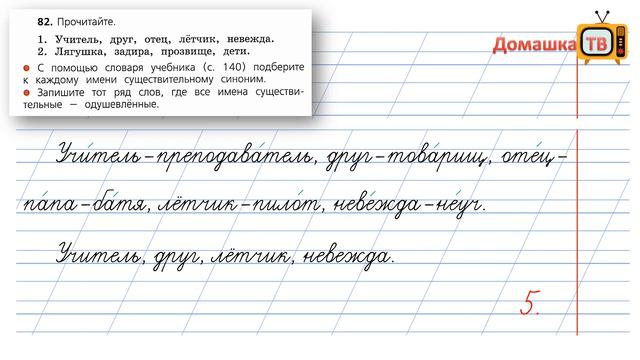 82. Прочитайте.
1. Учитель, друг, отец, лётчик, невежда.
2. Лягушка, задира, прозвище, дети.
С помощью словаря учебника (с. 140) подберите
к каждому имени существительному синоним.
Запишите тот ряд слов, где все имена существи-
тельные — одушевлённые.
Домашка ТВ
Учи́тель – преподава́тель, друг – това́рищ, оте́ц –
па́па – ба́тя, лётчик – пило́т, неве́жда – не́уч.
Учитель, друг, лётчик, невежда.
5.